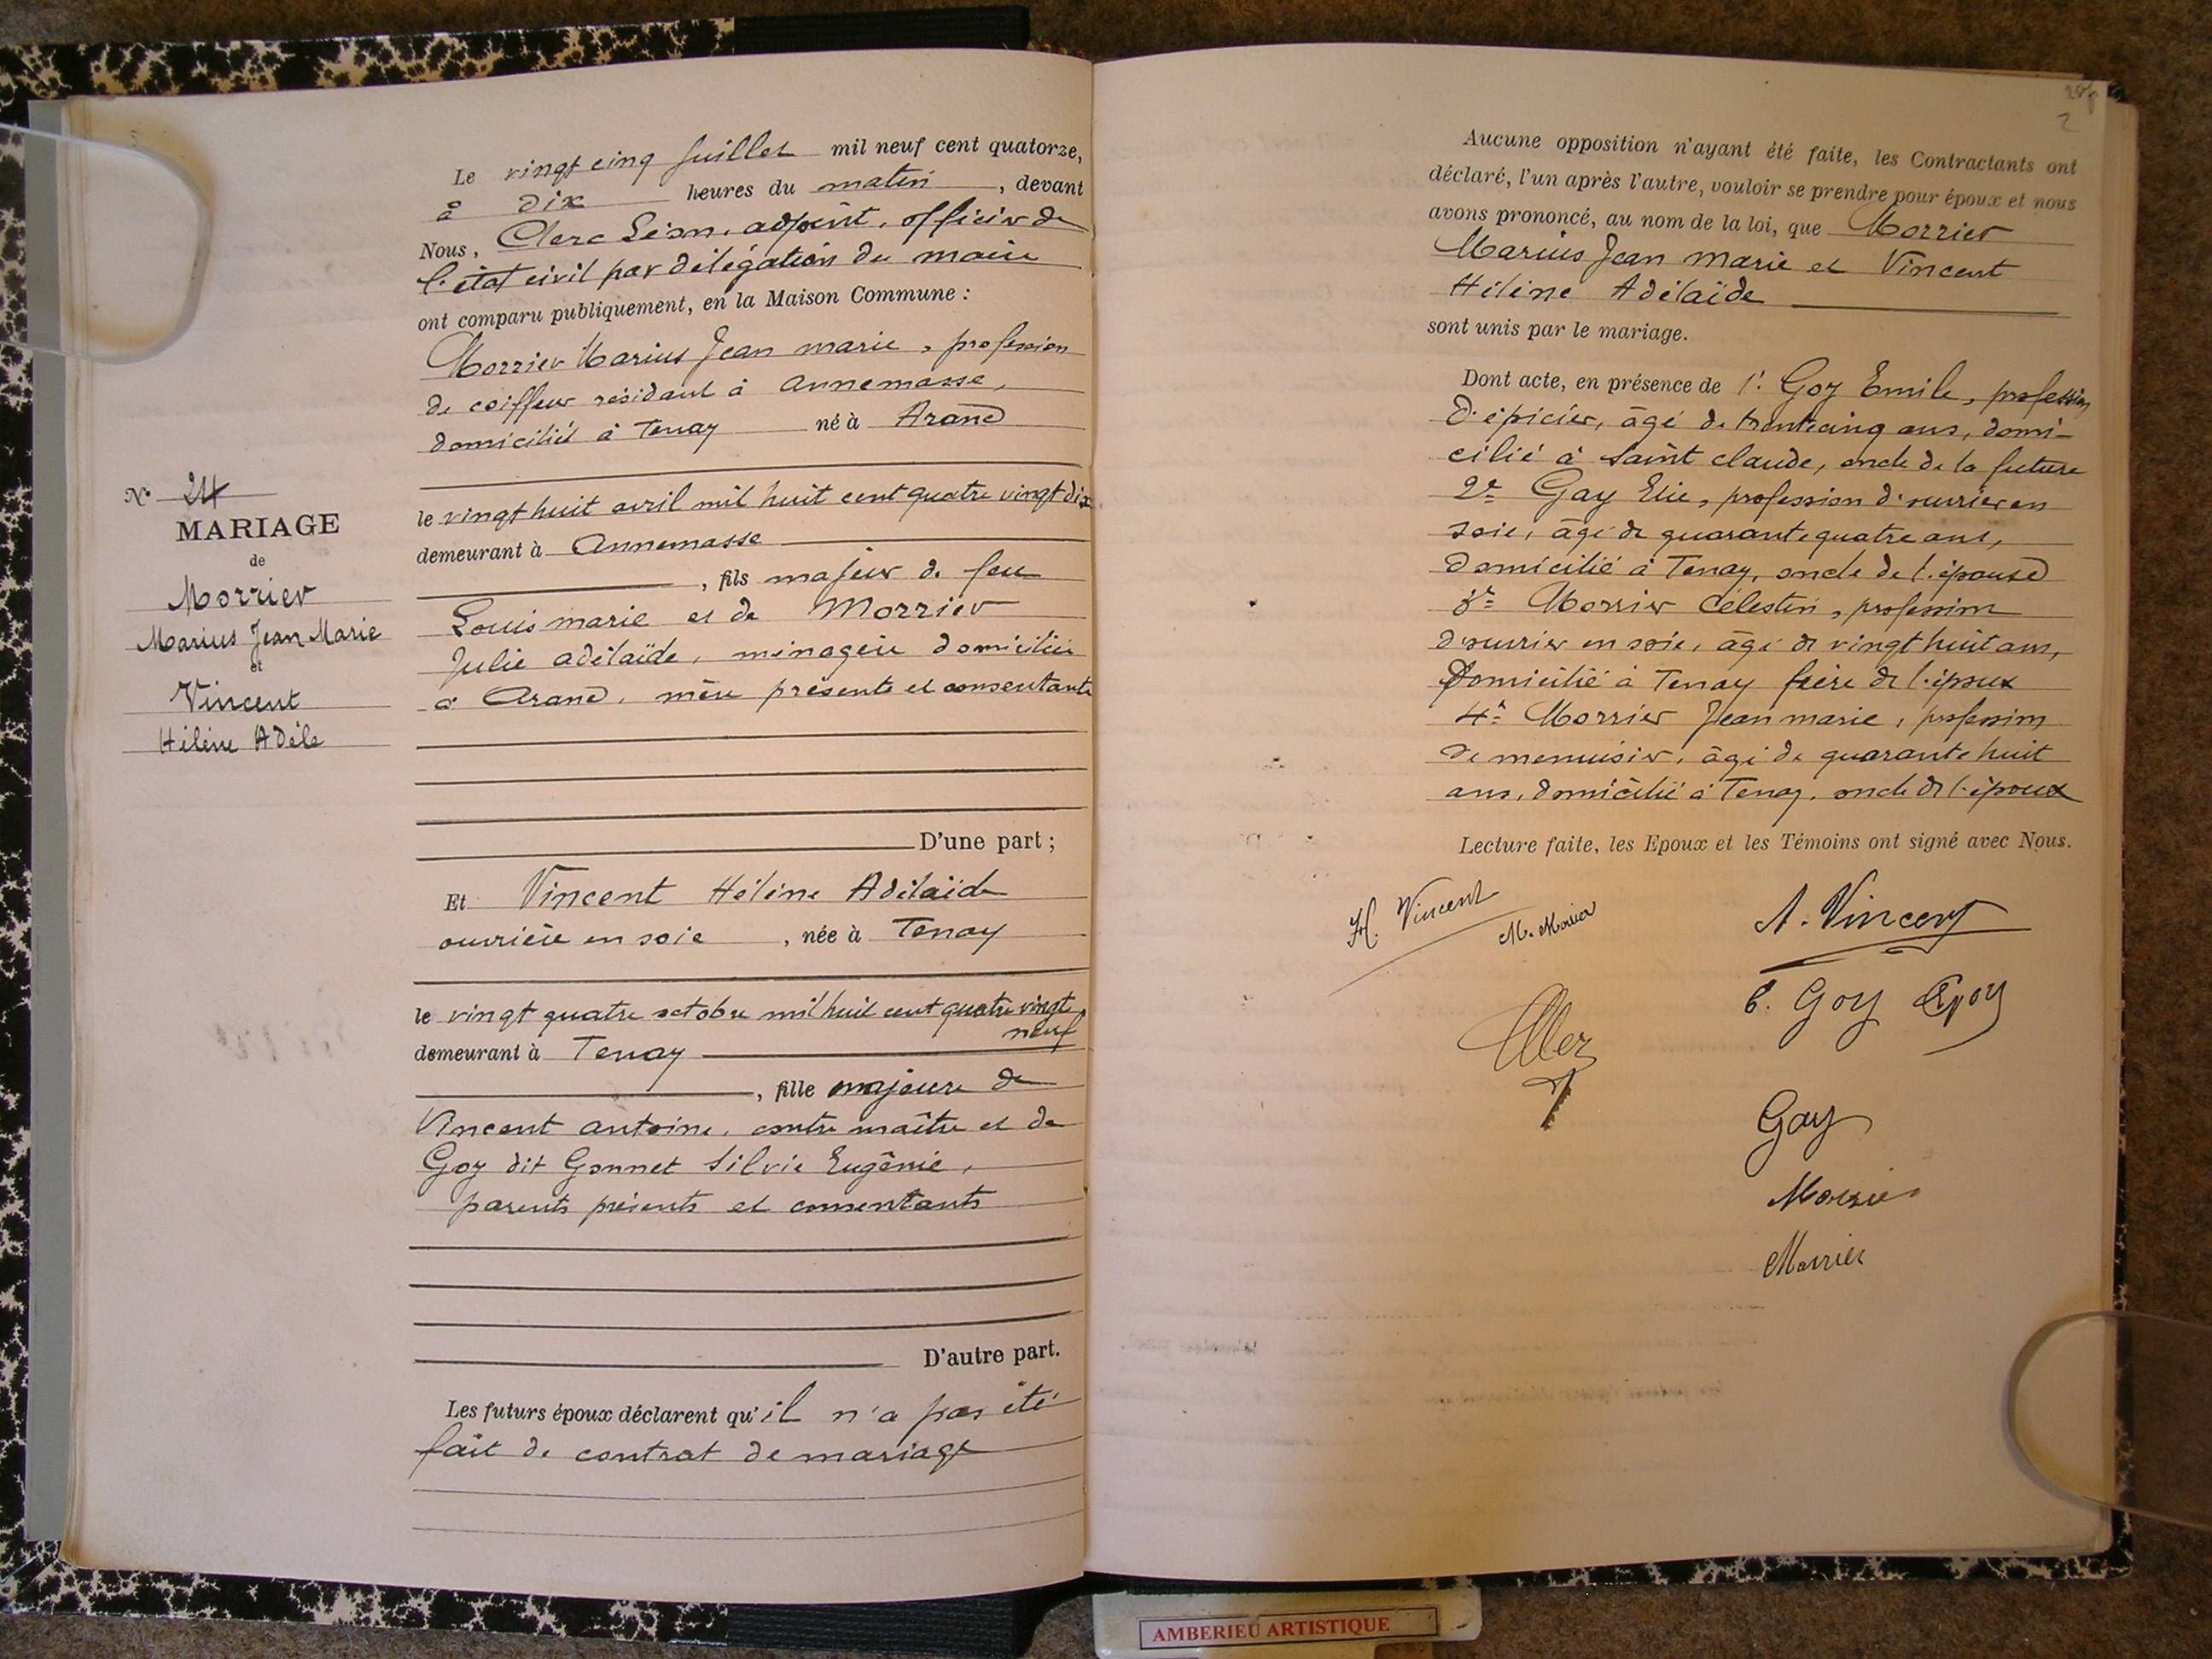 N° 24
MARIAGE
de
Morrier
Marius Jean Marie
et
Vincent
Hélène Adèle
Le vingt cinq juillet mil neuf cent quatorze,
à dix heures du matin, devant
Nous, Clerc Léon, adjoint, officier de
l'état civil par délégation du maire
ont comparu publiquement, en la Maison Commune :
Morrier Marius Jean marie, profession
de coiffeur résidant à Annemasse,
domicilié à Tenay né à Arand
le vingt huit avril mil huit cent quatre vingt dix
demeurant à Annemasse
, fils majeur de feu
Louis marie et de Morrier
Julie adélaïde, ménagère domiciliée
à Arand, mère présente et consentante
D'une part ;
Et Vincent Hélène Adélaïde
ouvrière en soie, née à Tenay
le vingt quatre octobre mil huit cent quatre vingt
neuf
demeurant à Tenay
, fille majeure de
Vincent antoine, contre maître et de
Goy dit Gonnet Silvie Eugénie,
parents présents et consentants
D'autre part.
Les futurs époux déclarent qu'il n'a pas été
fait de contrat de mariage
2
Aucune opposition n'ayant été faite, les Contractants ont
déclaré, l'un après l'autre, vouloir se prendre pour époux et nous
avons prononcé, au nom de la loi, que Morrier
Marius Jean marie et Vincent
Hélène Adélaïde
sont unis par le mariage.
Dont acte, en présence de 1° Goy Emile, profession
d'épicier, âgé de trente cinq ans, domi-
cilié à Saint claude, oncle de la future
2e Gay Elie, profession d'ouvrier en
soie, âgé de quarante quatre ans,
domicilié à Tenay, oncle de l'épouse
3e Morrier Célestin, profession
d'ouvrier en soie, âgé de vingt huit ans,
Domicilié à Tenay frère de l'époux
4e Morrier Jean marie, profession
de menuisier, âgé de quarante huit
ans, domicilié à Tenay, oncle de l'époux
Lecture faite, les Epoux et les Témoins ont signé avec Nous.
H. Vincent
M. Morrier
A. Vincent
E. Goy
Gay
Morrier
Morrier
AMBERIEU ARTISTIQUE